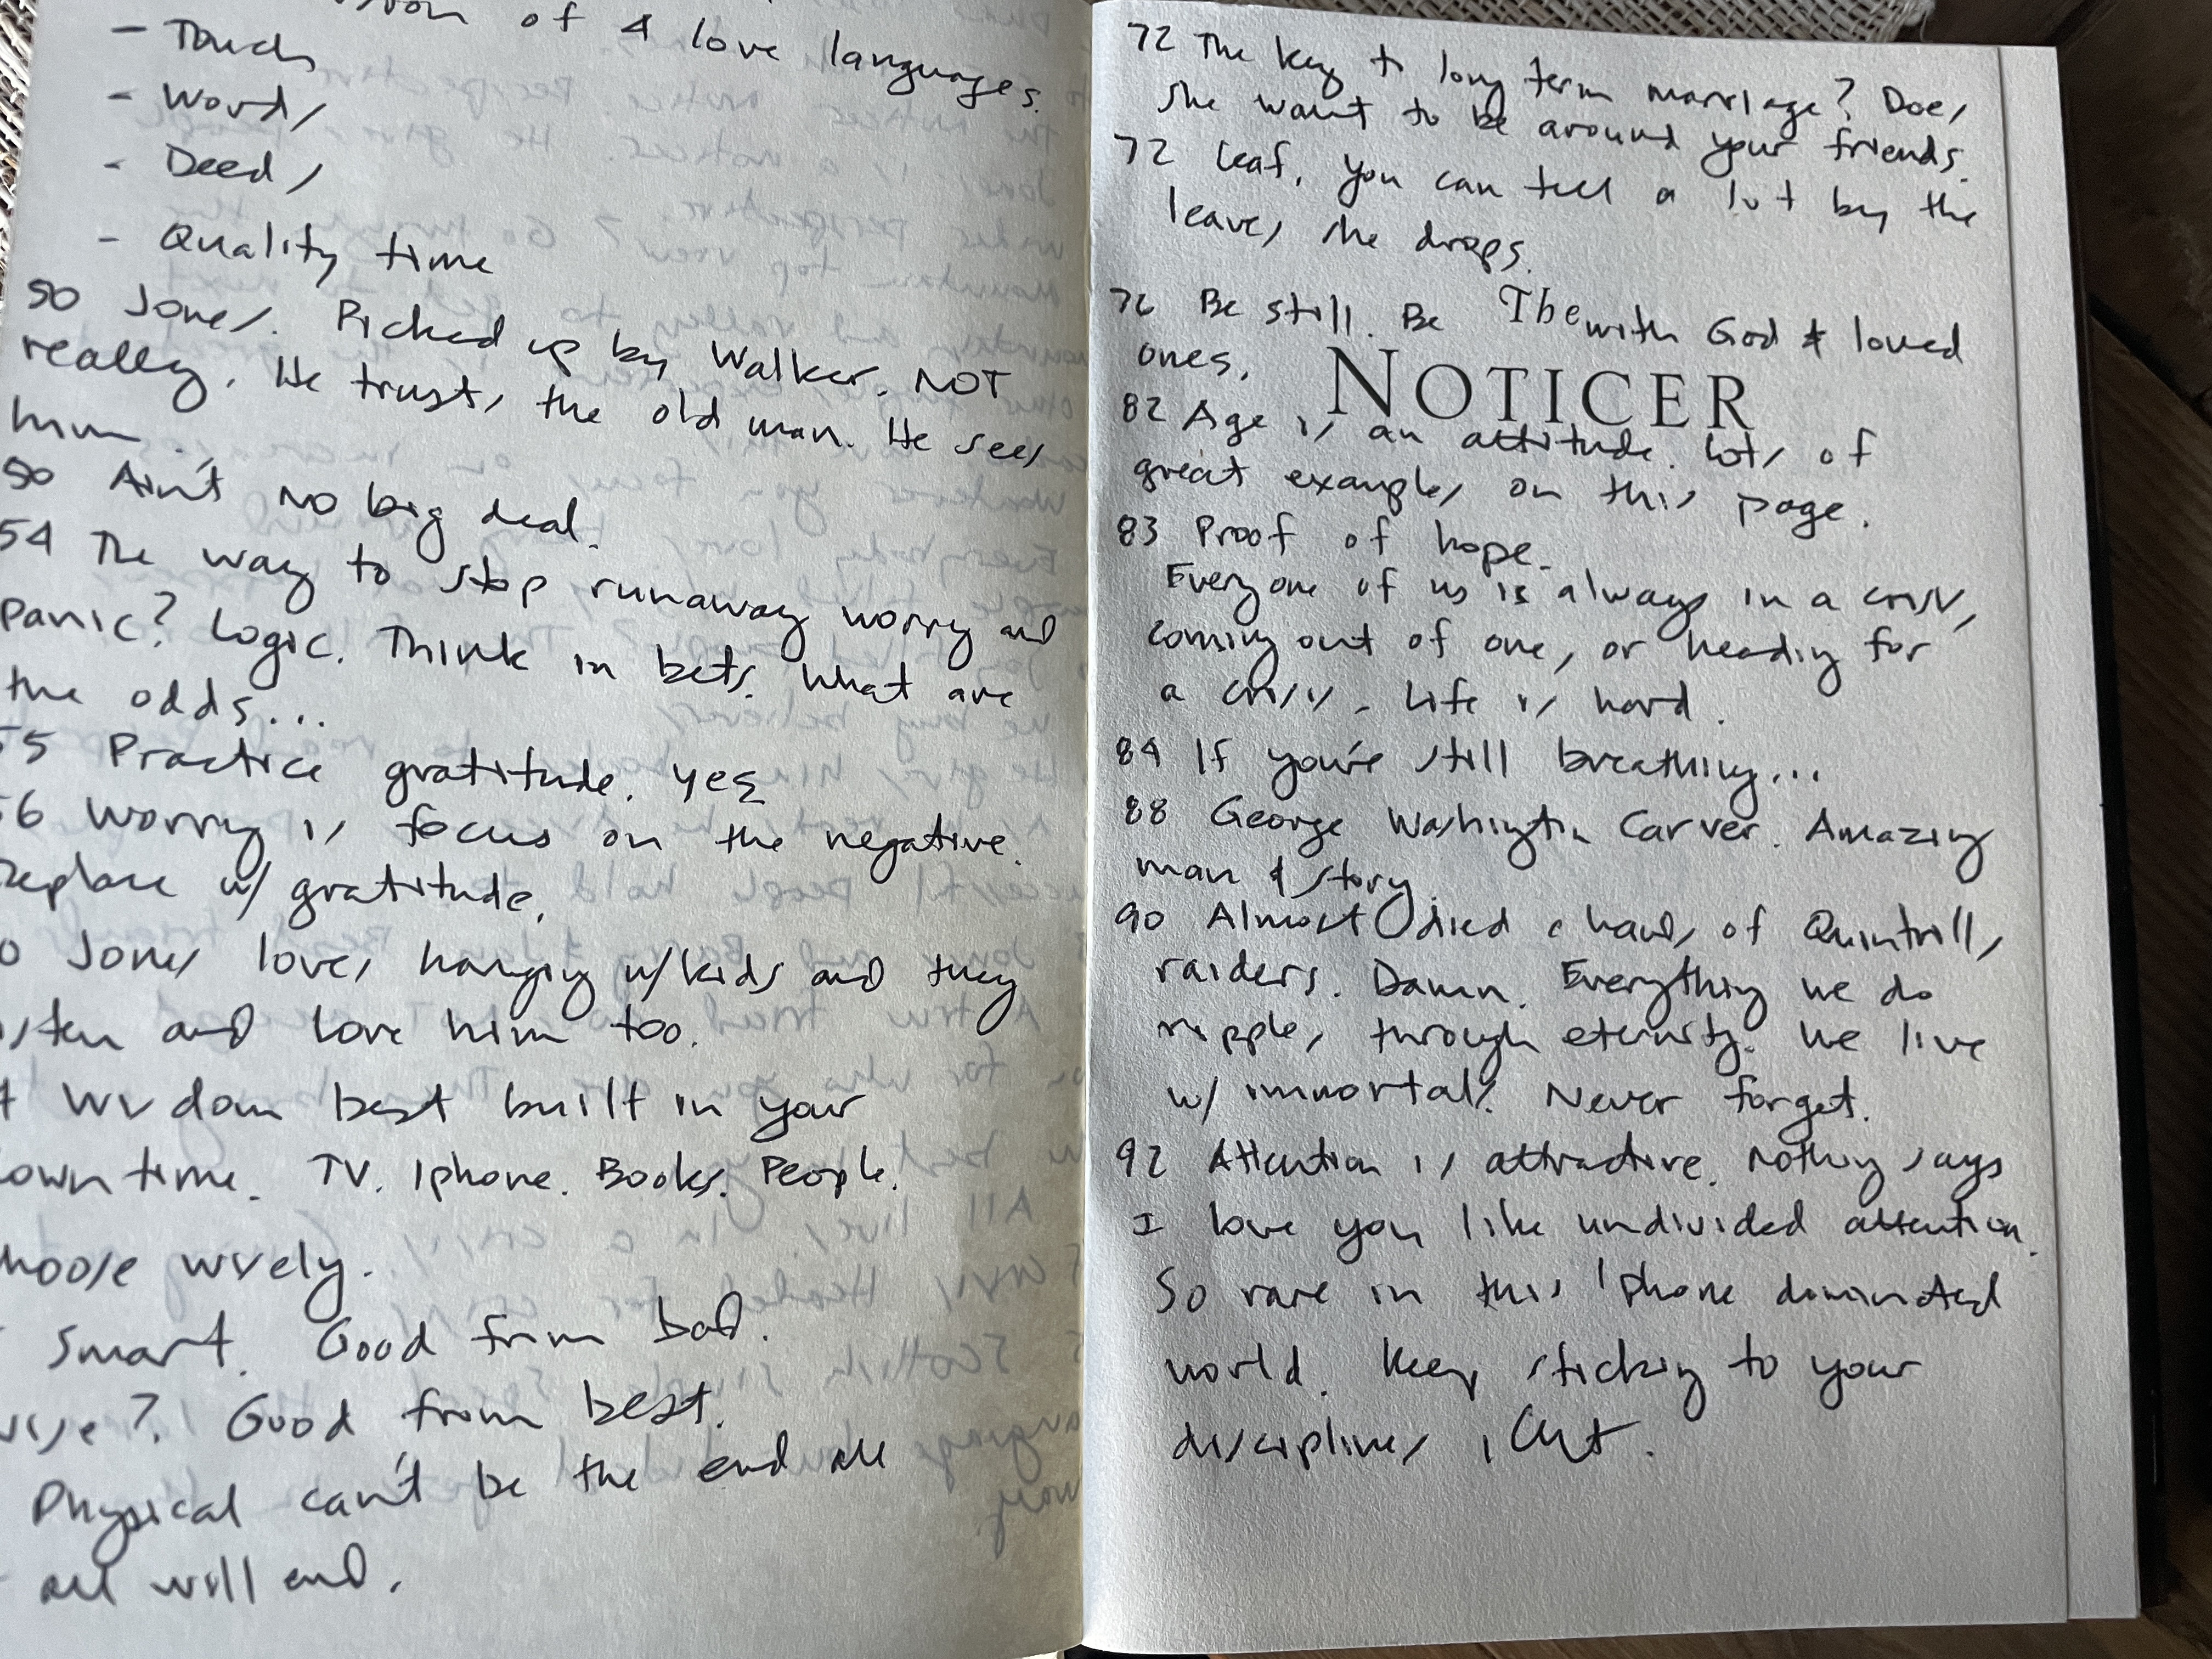 of 4 love languages.
- Touch
- Words
- Deeds
- Quality time
50 Jones. Picked up by Walker. NOT
really. He trusts the old man. He sees
him.
50 Ain't no big deal.
54 The way to stop runaway worry and
panic? Logic. Think in bets. What are
the odds...
55 Practice gratitude. Yes
56 Worry is focus on the negative.
Replace w/ gratitude.
Jones loves hanging w/kids and they
listen and love him too.
Wisdom best built in your
down time. TV. Iphone. Books. People.
Choose wisely.
Smart. Good from bad.
Wise? Good from best.
Physical can't be the end all
all will end.
72 The key to long term marriage? Does
she want to be around your friends.
72 Leaf. You can tell a lot by the
leaves she drops.
76 Be still. Be with God & loved
ones.
The
NOTICER
82 Age is an attitude. Lots of
great examples on this page.
83 Proof of hope.
Everyone of us is always in a crisis,
coming out of one, or heading for
a crisis. Life is hard.
84 If you're still breathing...
88 George Washington Carver. Amazing
man & story.
90 Almost died hands of Quintrill's
raiders. Damn. Everything we do
ripples through eternity. We live
w/ immortals. Never forget.
92 Attention is attractive. Nothing says
I love you like undivided attention.
So rare in this Iphone dominated
world. Keep sticking to your
disciplines